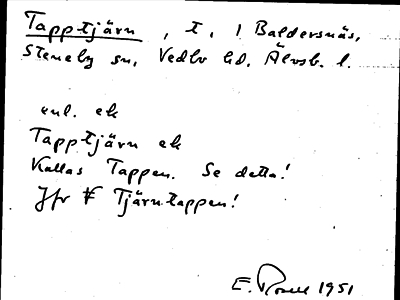 Tapptjärn, t, i Baldersnäs,
Steneby sn, Vedbo hd. Älvsb. l.
enl. ek
Tapptjärn ek
Kallas Tappen. Se detta!
Jfr ⚹ Tjärntappen!
E. Rosell 1951